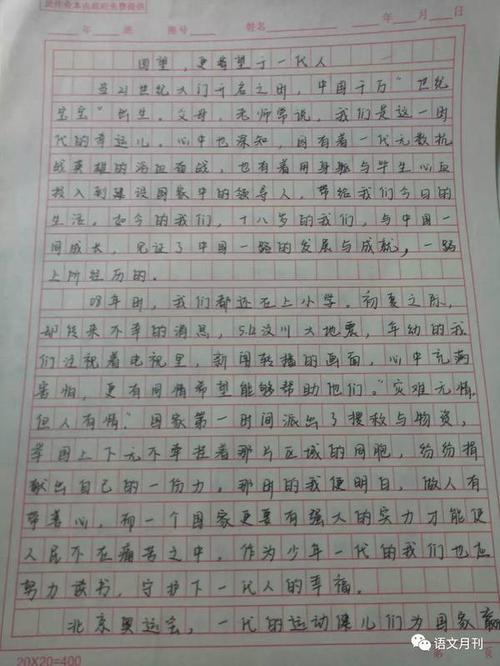 此作业本由政府免费提供
年 班 座号 姓名 年 月 日
回望,更希望于一代人
当21世纪大门千启之时,中国千万“世纪
宝宝”出生。父母、老师常说,我们是这一时
代的幸运儿。心中也深知,因有着一代无数抗
战英雄的浴血奋战,也有着用身躯与毕生心血
投入到建设国家中的领导人,带给我们今日的
生活。如今的我们,十八岁的我们,与中国一
同成长,见证了中国一路的发展与成就,一路
上所经历的。
08年时,我们都还在上小学。初夏之际,
却传来不幸的消息,5.12汶川大地震,年幼的我
们注视着电视里,新闻转播的画面,心中充满
害怕,更有同情希望能够帮助他们。“灾难无情
但人有情。”国家第一时间派出了搜救与物资,
举国上下无不牵挂着那片区域的同胞,纷纷捐
献出自己的一份力。那时的我便明白,做人有
带善心,而一个国家更要有强大的实力才能使
人民不在痛苦之中,作为少年一代的我们也应
努力读书,守护下一代人的幸福。
北京奥运会,一代的运动健儿们为国家赢
20X20=400
第 页
语文月刊